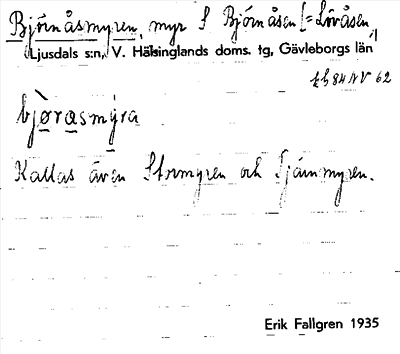 Björnåsmyren, myr S Björnåsen [= Lövåsen]
Ljusdals s:n, V. Hälsinglands doms. tg, Gävleborgs län
84 NV 62
bjø̀rasmýra
Kallas även Stormyren och Tjärnmyren.
Erik Fallgren 1935